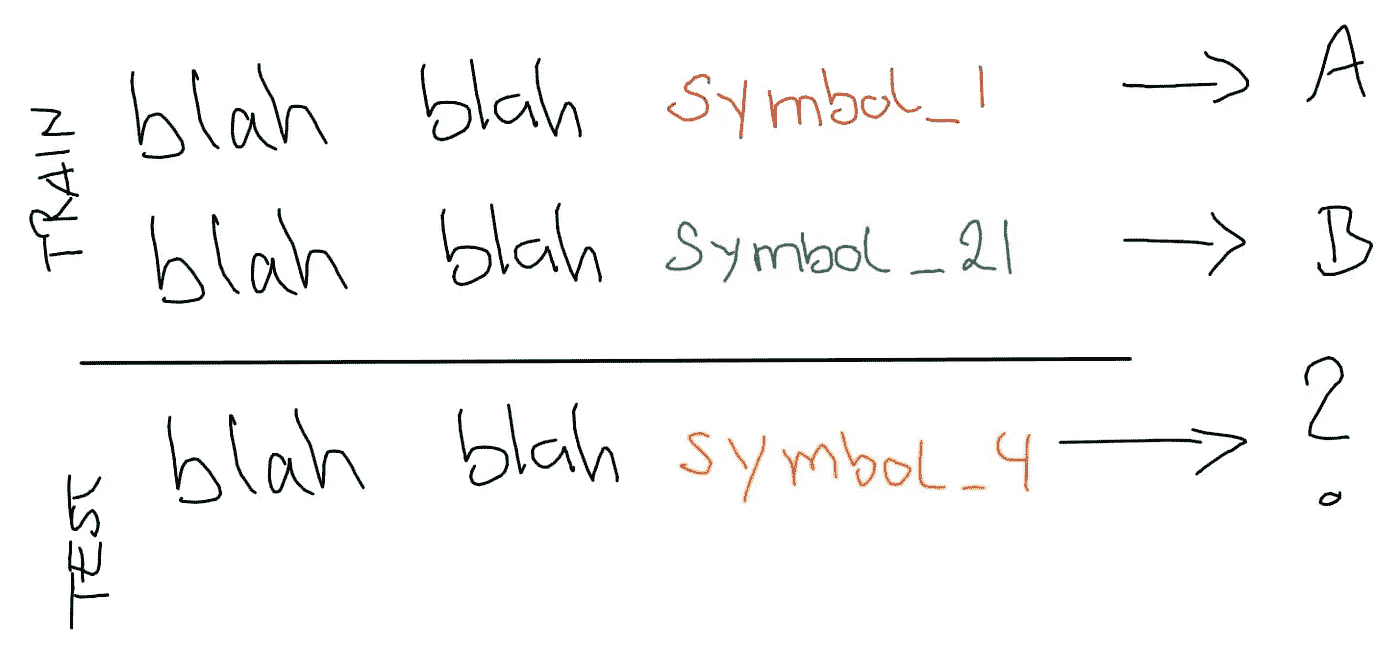 TRAIN
blah blah symbol_1 → A
blah blah symbol_21 → B
TEST
blah blah symbol_4 → ?